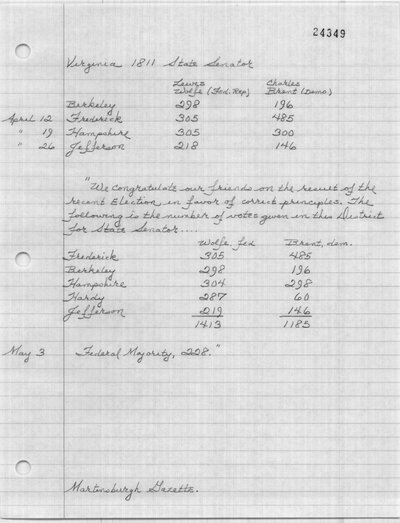 24349
Virginia 1811 State Senator
Lewis Charles
Wolfe (Fed. Rep) Brent (Demo)
Berkeley 298 196
April 12 Frederick 305 485
" 19 Hampshire 305 300
" 26 Jefferson 218 146
"We congratulate our friends on the result of the
recent Election in favor of correct principles. The
following is the number of votes given in this District
for State Senator....
Wolfe, fed Brent, dem.
Frederick 305 485
Berkeley 298 196
Hampshire 304 298
Hardy 287 60
Jefferson 219 146
1413 1185
May 3 Federal Majority, 228."
Martinsburgh Gazette.